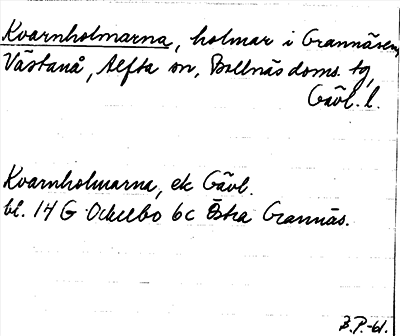 Kvarnholmarna, holmar i Grannäsen,
Västanå, Alfta sn, Bollnäs doms. tg,
Gävl. l.
Kvarnholmarna, ek Gävl.
bl. 14 G Ockelbo 6c Östra Grannäs.
B.P.-61.